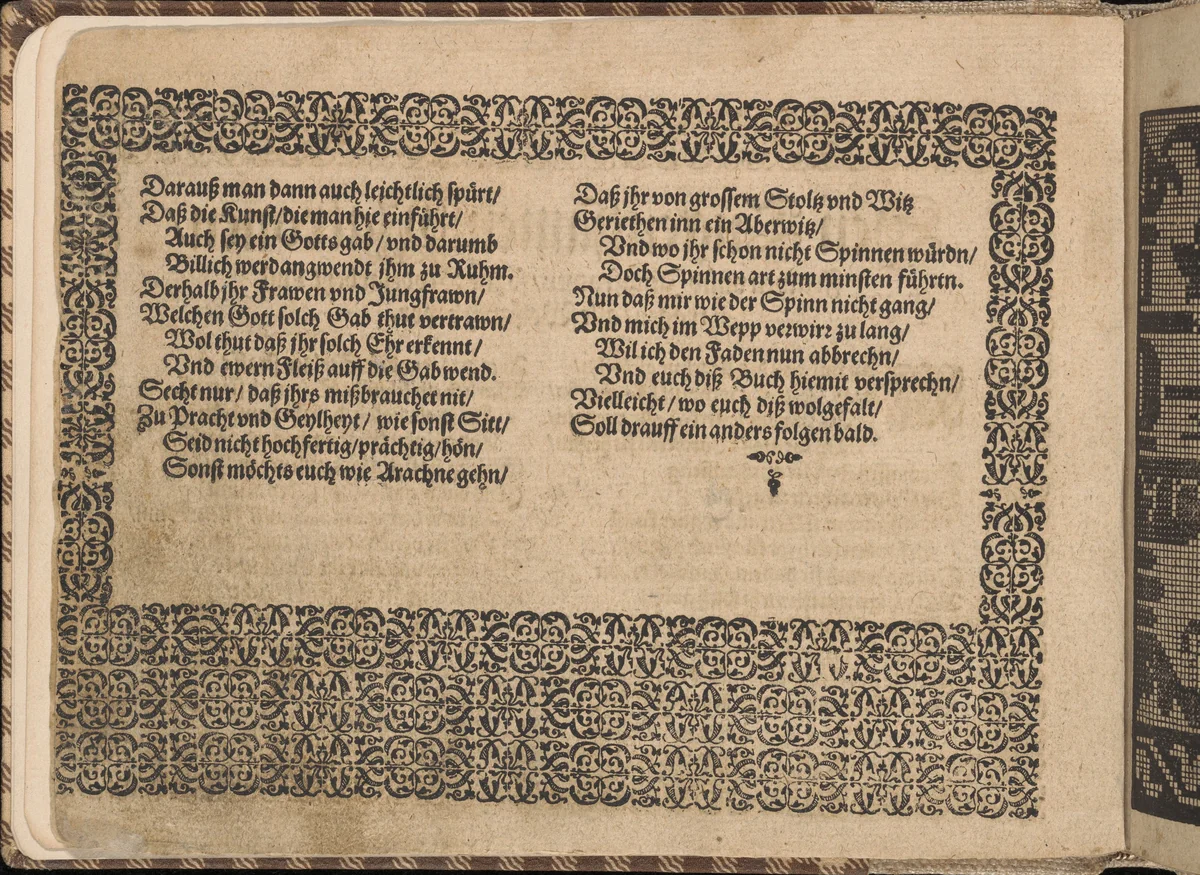 Darauß man dann auch leichtlich spürt/
Daß die Kunst/die man hie einführt/
Auch sey ein Gotts gab/vnd darumb
Billich werd angwendt jhm zu Ruhm.
Derhalb jhr Frawen vnd Jungfrawn/
Welchen Gott solch Gab thut vertrawn/
Wol thut daß jhr solch Ehr erkennt/
Vnd ewern Fleiß auff die Gab wend.
Secht nur/ daß jhrs mißbrauchet nit/
Zu Pracht vnd Geylheyt/ wie sonst Sitt/
Seid nicht hochfertig/prächtig/hön/
Sonst möchts euch wie Arachne gehn/
Daß jhr von grossem Stoltz vnd Witz
Geriethen inn ein Aberwitz/
Vnd wo jhr schon nicht Spinnen würdn/
Doch Spinnen art zum minsten führtn.
Nun daß mir wie der Spinn nicht gang/
Vnd mich im Wepp verwirr zu lang/
Wil ich den Faden nun abbrechn/
Vnd euch diß Buch hiemit versprechn/
Vielleicht/ wo euch diß wolgefalt/
Soll drauff ein anders folgen bald.